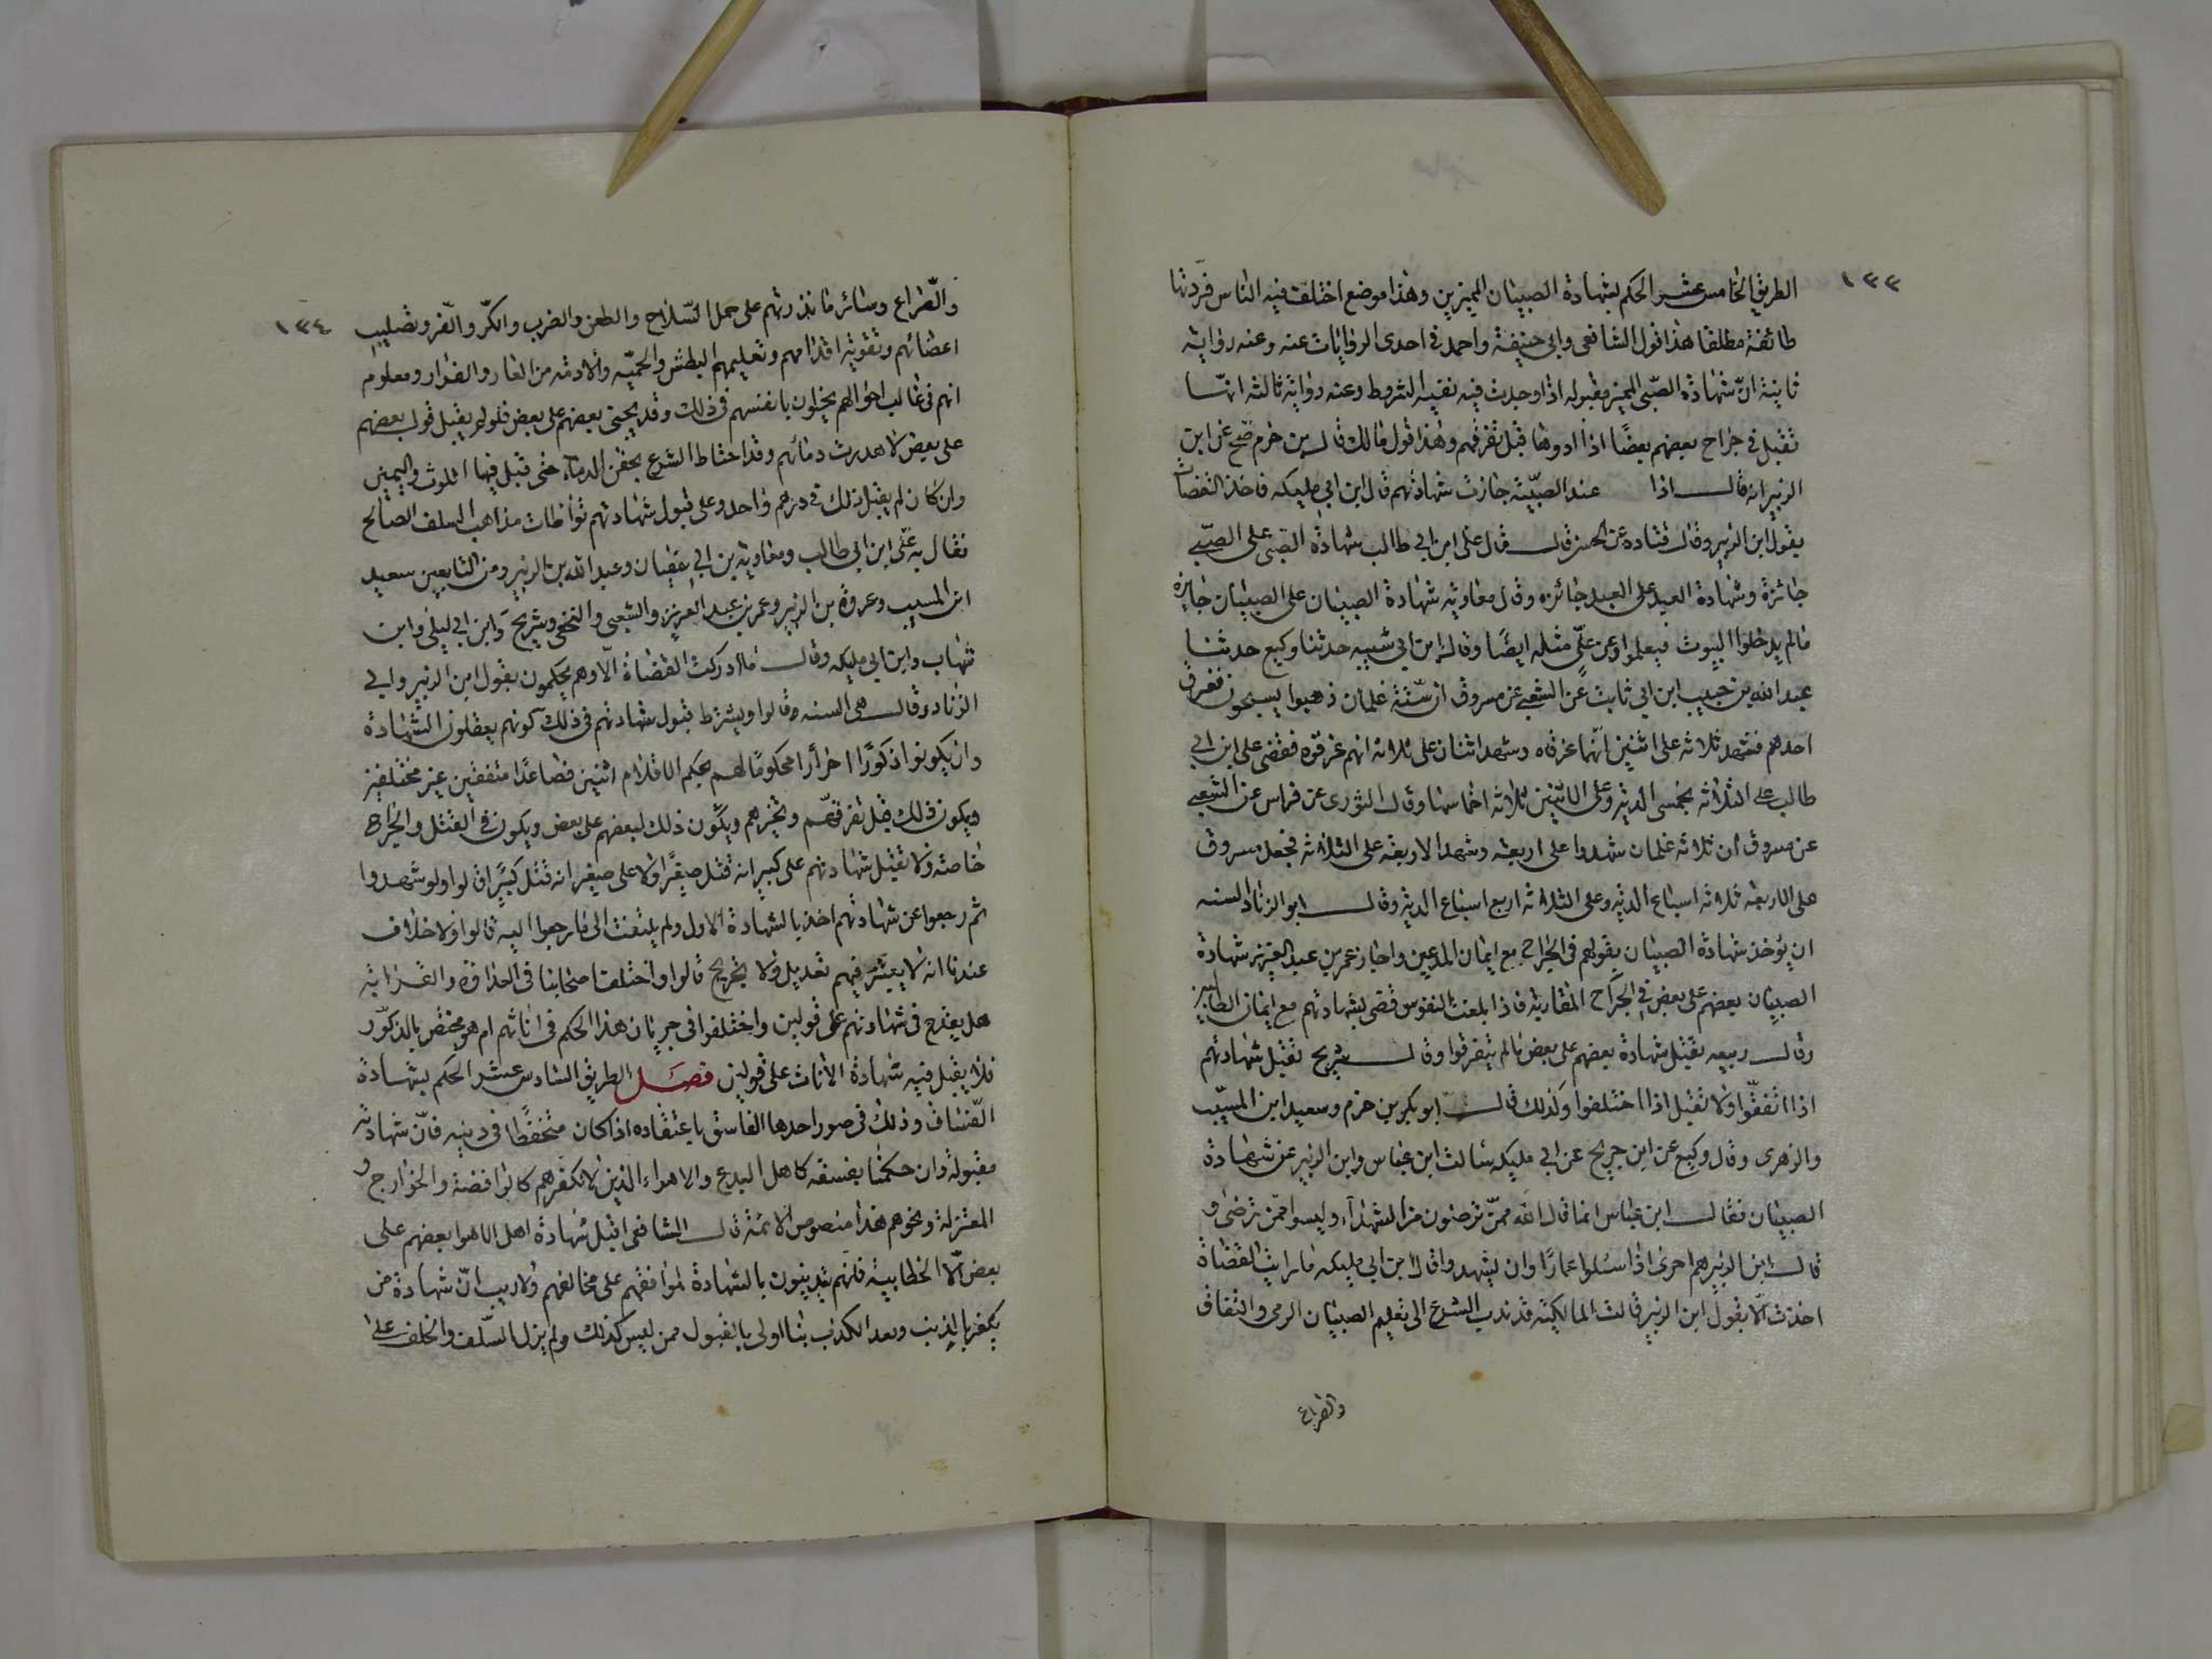 ١٣٣
الطريق الخامس عشر الحكم بشهادة الصبيان المميزين وهذا موضع اختلف فيه الناس فردتها
طائفة مطلقا هذا قول الشافعى وابى حنيفة واحمد فى احدى الروايات عنه وعنه رواية
ثانية انّ شهادة الصّبى المميز مقبوله اذا وجدت فيه بقية الشروط وعنه رواية ثالثه انهّا
تقبل فى جراح بعضهم بعضًا اذا ادوها قبل تفرقهم وهذا قول مالك قال بن حزم صّح عن ابن
الزبير انه قال اذا عند الصبيّة جازت شهادتهم قال ابن ابى مليكه فاخذ القضاة
بقول ابن الزبير وقال قتاده عن الحسن قال قال على ابن ابى طالب شهادة الصبى على الصبّى
جائزة وشهادة العبد على العبد جائزه وقال معاويه شهادة الصبيان على الصبيان جايزه
مالم يدخلوا البيوت فيعلموا وعن علّى مثله ايضًا وقال ابن ابى شيبه حدثنا وكيع حدثنا
عبد الله بن حبيب ابن ابى ثابت عن الشعبى عن مسروق ان ستّة غلمان ذهبوا يسبحون فغرق
احدهم فشهد ثلاثه على اثنين انّهما غرقاه وشهد اثنان على ثلاثه انهم غرقوه فقضى على ابن ابى
طالب على الثلاثه بخمسى الدية وعلى الاثنين ثلاثه اخماسها وقال الثورى عن فراس عن الشعبى
عن مسروق ان ثلاثه غلمان شهدوا على اربعه وشهد الاربعه على الثلاثه فجعل مسروق
على الاربعه ثلاثه اسباع الديه وعلى الثلاثه اربع اسباع الديه وقال ابو الزناد السنه
ان يؤخذ شهادة الصبيان بقولهم فى الجراح مع ايمان المدعين واجاز عمر بن عبد العزيز شهادة
الصبيان بعضهم على بعض فى الجراح المتقاربه فاذا بلغت النفوس قضى بشهادتهم مع ايمان الطالبين
وقال ربيعه تقبل شهادة بعضهم على بعض مالم يتفرقوا وقال شريح تقبل شهادتهم
اذا اتفقّوا ولا تقبل اذا اختلفوا وكذلك قال ابو بكر بن حزم وسعيد ابن المسيّب
والزهرى وقال وكيع عن ابن جريج عن ابى مليكه سالت ابن عباس وابن الزبير عن شهادة
الصبيان فقال ابن عباس انما قال الله ممنّ ترضون من الشهدآء وليسوا ممّن نرضى و
قال ابن الزبير هم احرى اذا سئلوا عمارًا وان يشهدوا قال ابن ابى مليكه ما رايت القضاة
اخذت الّا بقول ابن الزبير قالت المالكيّه قد ندب الشرع الى تعليم الصبيان الرمى والثقاف
والصراع
١٣٤
والصّراع وسائر ما يدربهم على حمل السّلاح والطعن والضرب والكّر والفّر وتصليب
اعضائهم وتقوية اقدامهم وتعليمهم البطش والحميّه والانفه من العار والفرار ومعلوم
انهم فى غالب احوالهم يخلون بانفسهم فى ذلك وقد يجنى بعضهم على بعض فلو لم يقبل قول بعضهم
على بعض لاهدرت دمائهم وقد احتاط الشرع بحقن الدماء حتى قبل فيها اللوث واليمين
وان كان لم يقبل ذلك فى درهم واحد وعلى قبول شهادتهم تواطات مذاهب السلف الصالح
فقال به علّى ابن ابى طالب ومعاوية بن ابى سفيان وعبد الله بن الزبير ومن التابعين سعيد
ابن المسيب وعروة بن الزبير وعمر بن عبد العزيز والشعبى والنخعى وشريح وابن ابى ليلى وابن
شهاب وابن ابى مليكه وقال ما ادركت القضاة الّا وهم يحكمون بقول ابن الزبير وابى
الزناد وقال هى السنه وقالوا ويشترط قبول شهادتهم فى ذلك كونهم يعقلون الشهادة
وان يكونوا ذكورًا احرارا محكومًا لهم بحكم الاسلام اثنين فصاعدًا متفقين غير مختلفين
ويكون ذلك قبل تفرقهم وتخيرهم ويكون ذلك لبعضهم على بعض ويكون فى القتل والجراح
خاصته ولا تقبل شهادتهم على كبير انه قتل صغيرًا ولا على صغير انه قتل كبيرًا قالوا ولو شهدوا
ثم رجعوا عن شهادتهم اخذ بالشهادة الاول ولم يلتفت الى ما رجعوا اليه قالوا ولا خلاف
عندنا انه لا يعتبر فيهم تعديل ولا تجريح قالوا واختلف اصحابنا فى العداوة والقرابة
هل يقدح فى شهادتهم على قولين واختلفوا فى جريان هذا الحكم فى اناثهم ام هو مختص بالذكور
فلا يقبل فيه شهادة الاناث على قولين فصل الطريق السادس عشر الحكم بشهادة
الفّساق وذلك فى صور احدها الفاسق باعتقاده اذا كان متحفظًا فى دينه فانّ شهادته
مقبولة وان حكمنا بفسقه كاهل البدع والاهواء الذين لا نكفرهم كالرافضة والخوارج و
المعتزلة ونحوهم هذا منصوص الائمّة قال الشافعى اقبل شهادة اهل الاهوا بعضهم على
بعض الّا الخطابية فانّهم يتدينون بالشهادة لموافقهم على مخالفهم ولا ريب انّ شهادة من
يكفر بالذنب ويعد الكذب ذنبا اولى بالقبول ممن ليس كذلك ولم يزل السّلف والخلف على